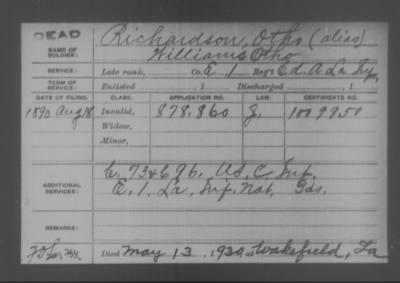 DEAD
Richardson, Otho (alias)
NAME OF SOLDIER: Williams Otho
SERVICE: Late rank, Co. E 1 Reg't Cd. A La Inf.
TERM OF SERVICE: Enlisted , 1 Discharged , 1
DATE OF FILING. CLASS. APPLICATION NO. LAW. CERTIFICATE NO.
1890 Aug 18 Invalid, 878.860 G. 1099.50
Widow,
Minor,
C. 73 & G 96. U.S. C. Inf.
ADDITIONAL SERVICES: E. 1. La. Inf. Nat. Gds.
REMARKS:
Died May 13, 1930, at Wakefield, La